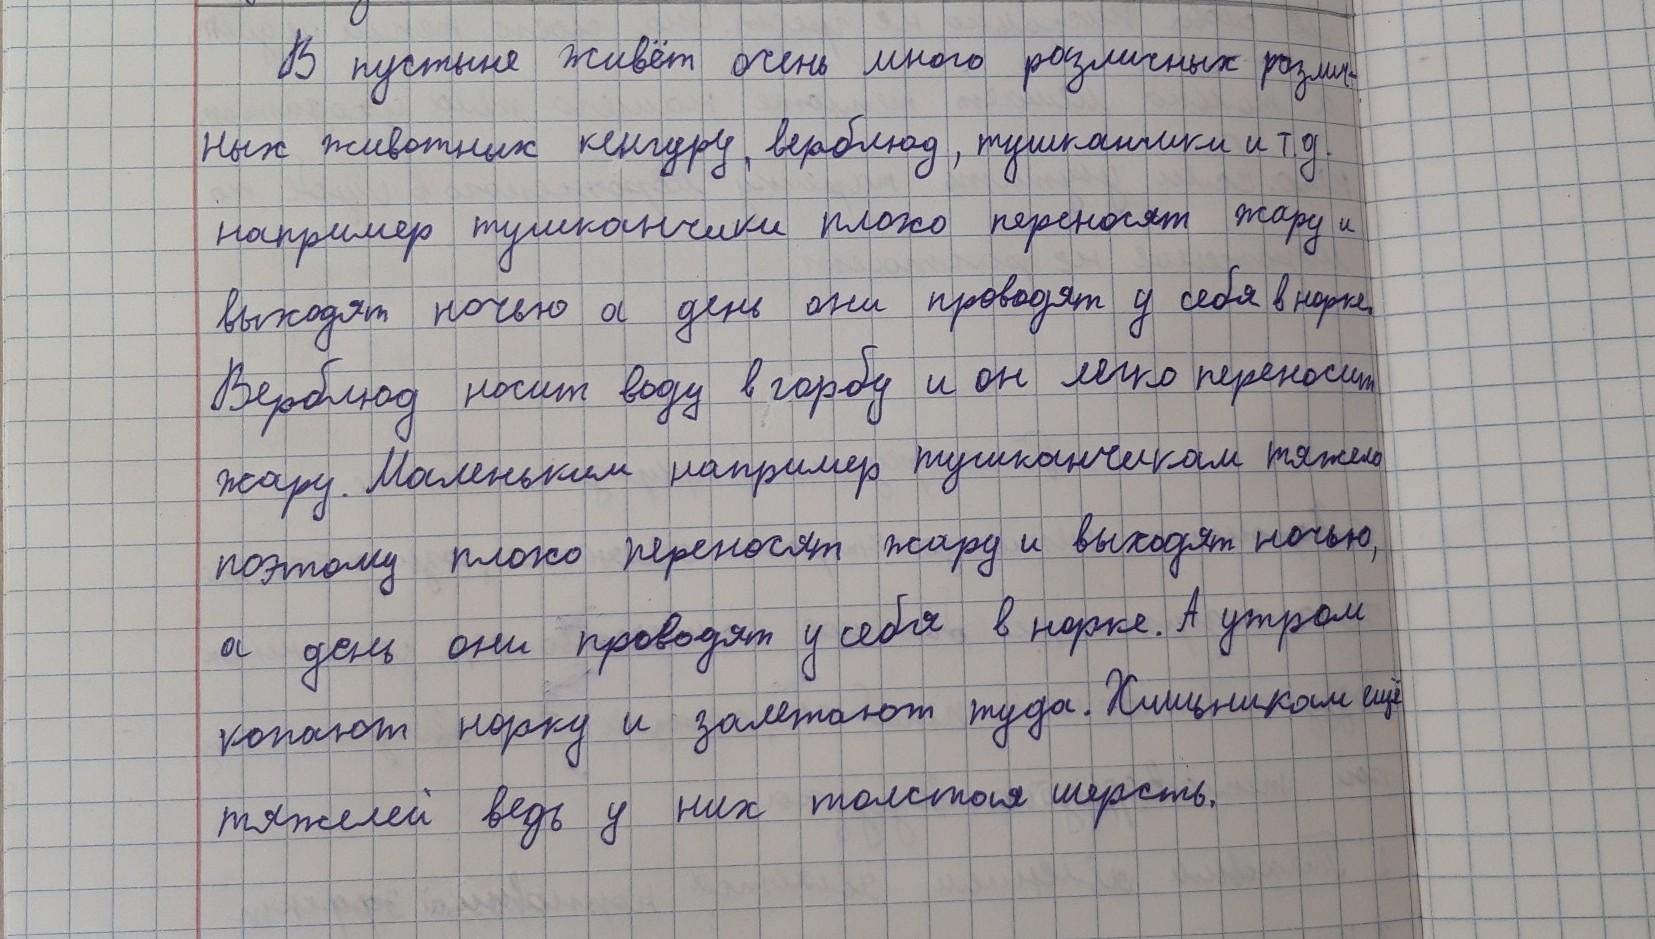 В пустыне живёт очень много различных различ-
ных животных кенгуру, верблюд, тушканчики и т.д.
например тушканчики плохо переносят жару и
выходят ночью а день они проводят у себя в норке.
Верблюд носит воду в горбу и он легко переносит
жару. Маленьким например тушканчикам тяжело
поэтому плохо переносят жару и выходят ночью,
а день они проводят у себя в норке. А утром
копают норку и залетают туда. Хищникам ещё
тяжелей ведь у них толстая шерсть.